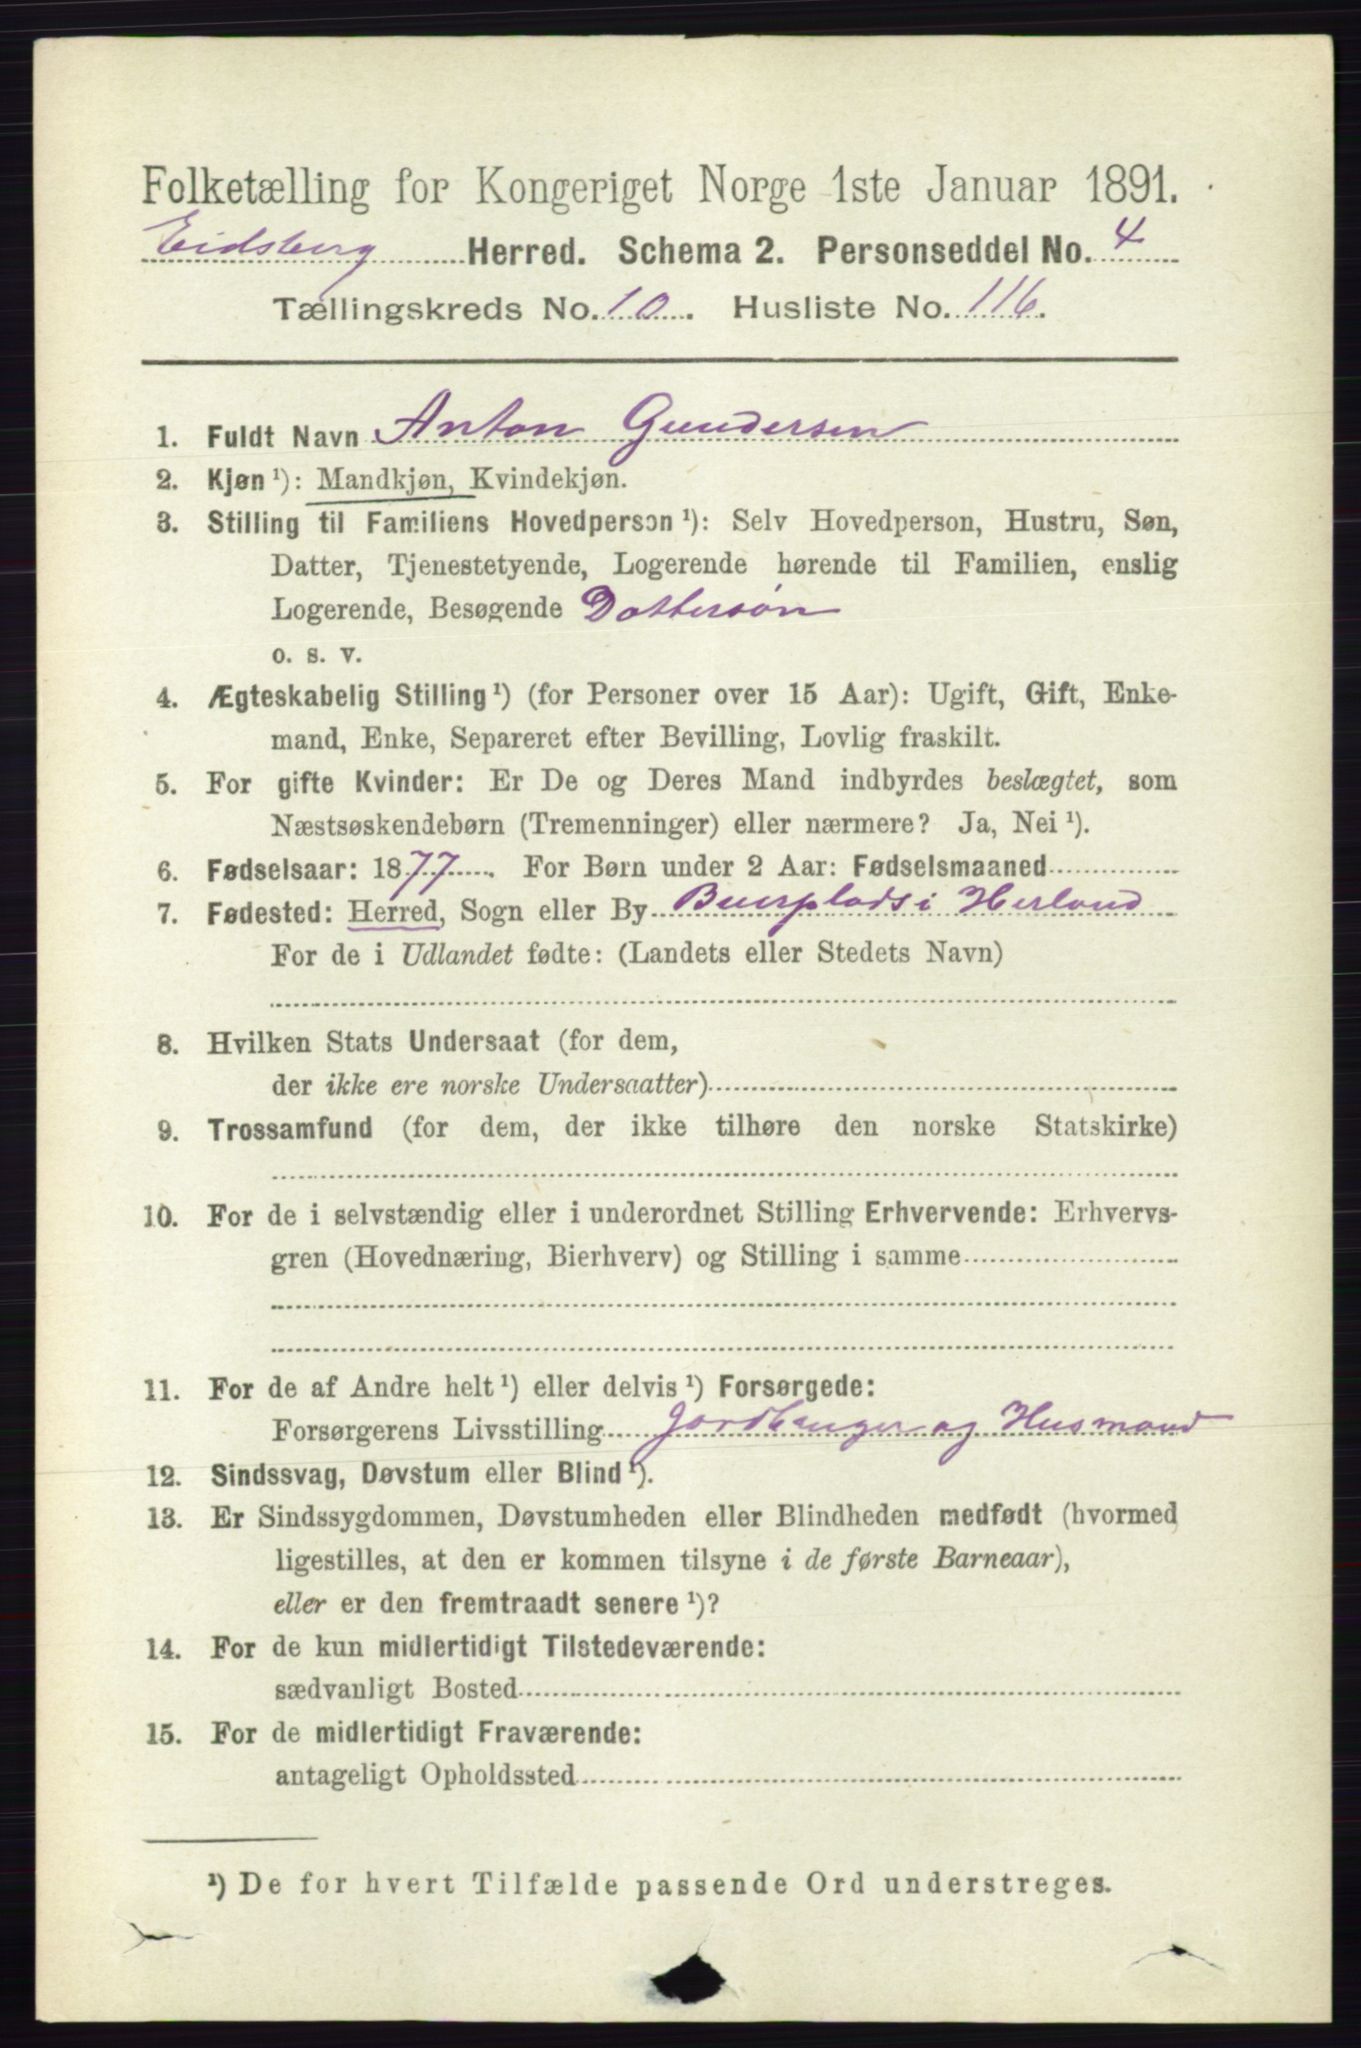 Folketælling for Kongeriget Norge 1ste Januar 1891.
Eidsberg Herred. Schema 2. Personseddel No. 4
Tællingskreds No. 10. Husliste No. 116.
1. Fuldt Navn Anton Gundersen
2. Kjøn ¹): Mandkjøn, Kvindekjøn.
3. Stilling til Familiens Hovedperson ¹): Selv Hovedperson, Hustru, Søn,
Datter, Tjenestetyende, Logerende hørende til Familien, enslig
Logerende, Besøgende Dattersøn
o. s. v.
4. Ægteskabelig Stilling ¹) (for Personer over 15 Aar): Ugift, Gift, Enke-
mand, Enke, Separeret efter Bevilling, Lovlig fraskilt.
5. For gifte Kvinder: Er De og Deres Mand indbyrdes beslægtet, som
Næstsøskendebørn (Tremenninger) eller nærmere? Ja, Nei ¹).
6. Fødselsaar: 1877. For Børn under 2 Aar: Fødselsmaaned
7. Fødested: Herred, Sogn eller By i Herland
For de i Udlandet fødte: (Landets eller Stedets Navn)
8. Hvilken Stats Undersaat (for dem,
der ikke ere norske Undersaatter)
9. Trossamfund (for dem, der ikke tilhøre den norske Statskirke)
10. For de i selvstændig eller i underordnet Stilling Erhvervende: Erhvervs-
gren (Hovednæring, Bierhverv) og Stilling i samme
11. For de af Andre helt ¹) eller delvis ¹) Forsørgede:
Forsørgerens Livsstilling Jordbruger og Husmand
12. Sindssvag, Døvstum eller Blind ¹).
13. Er Sindssygdommen, Døvstumheden eller Blindheden medfødt (hvormed
ligestilles, at den er kommen tilsyne i de første Barneaar),
eller er den fremtraadt senere ¹)?
14. For de kun midlertidigt Tilstedeværende:
sædvanligt Bosted
15. For de midlertidigt Fraværende:
antageligt Opholdssted
¹) De for hvert Tilfælde passende Ord understreges.